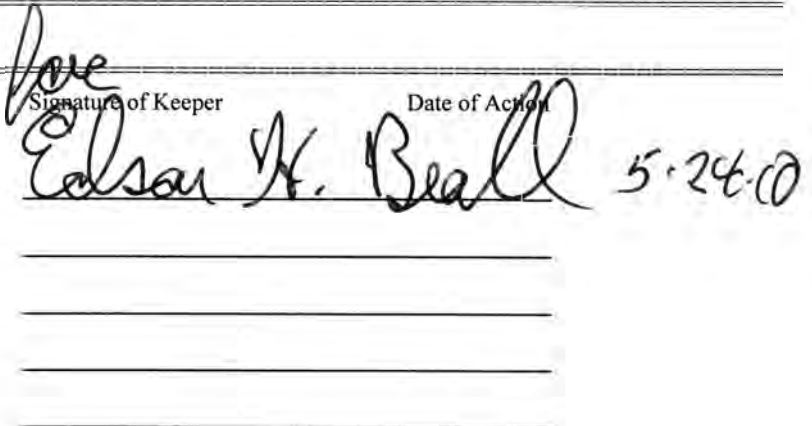 for
Signature of Keeper Date of Action
Edson H. Beall 5.24.10